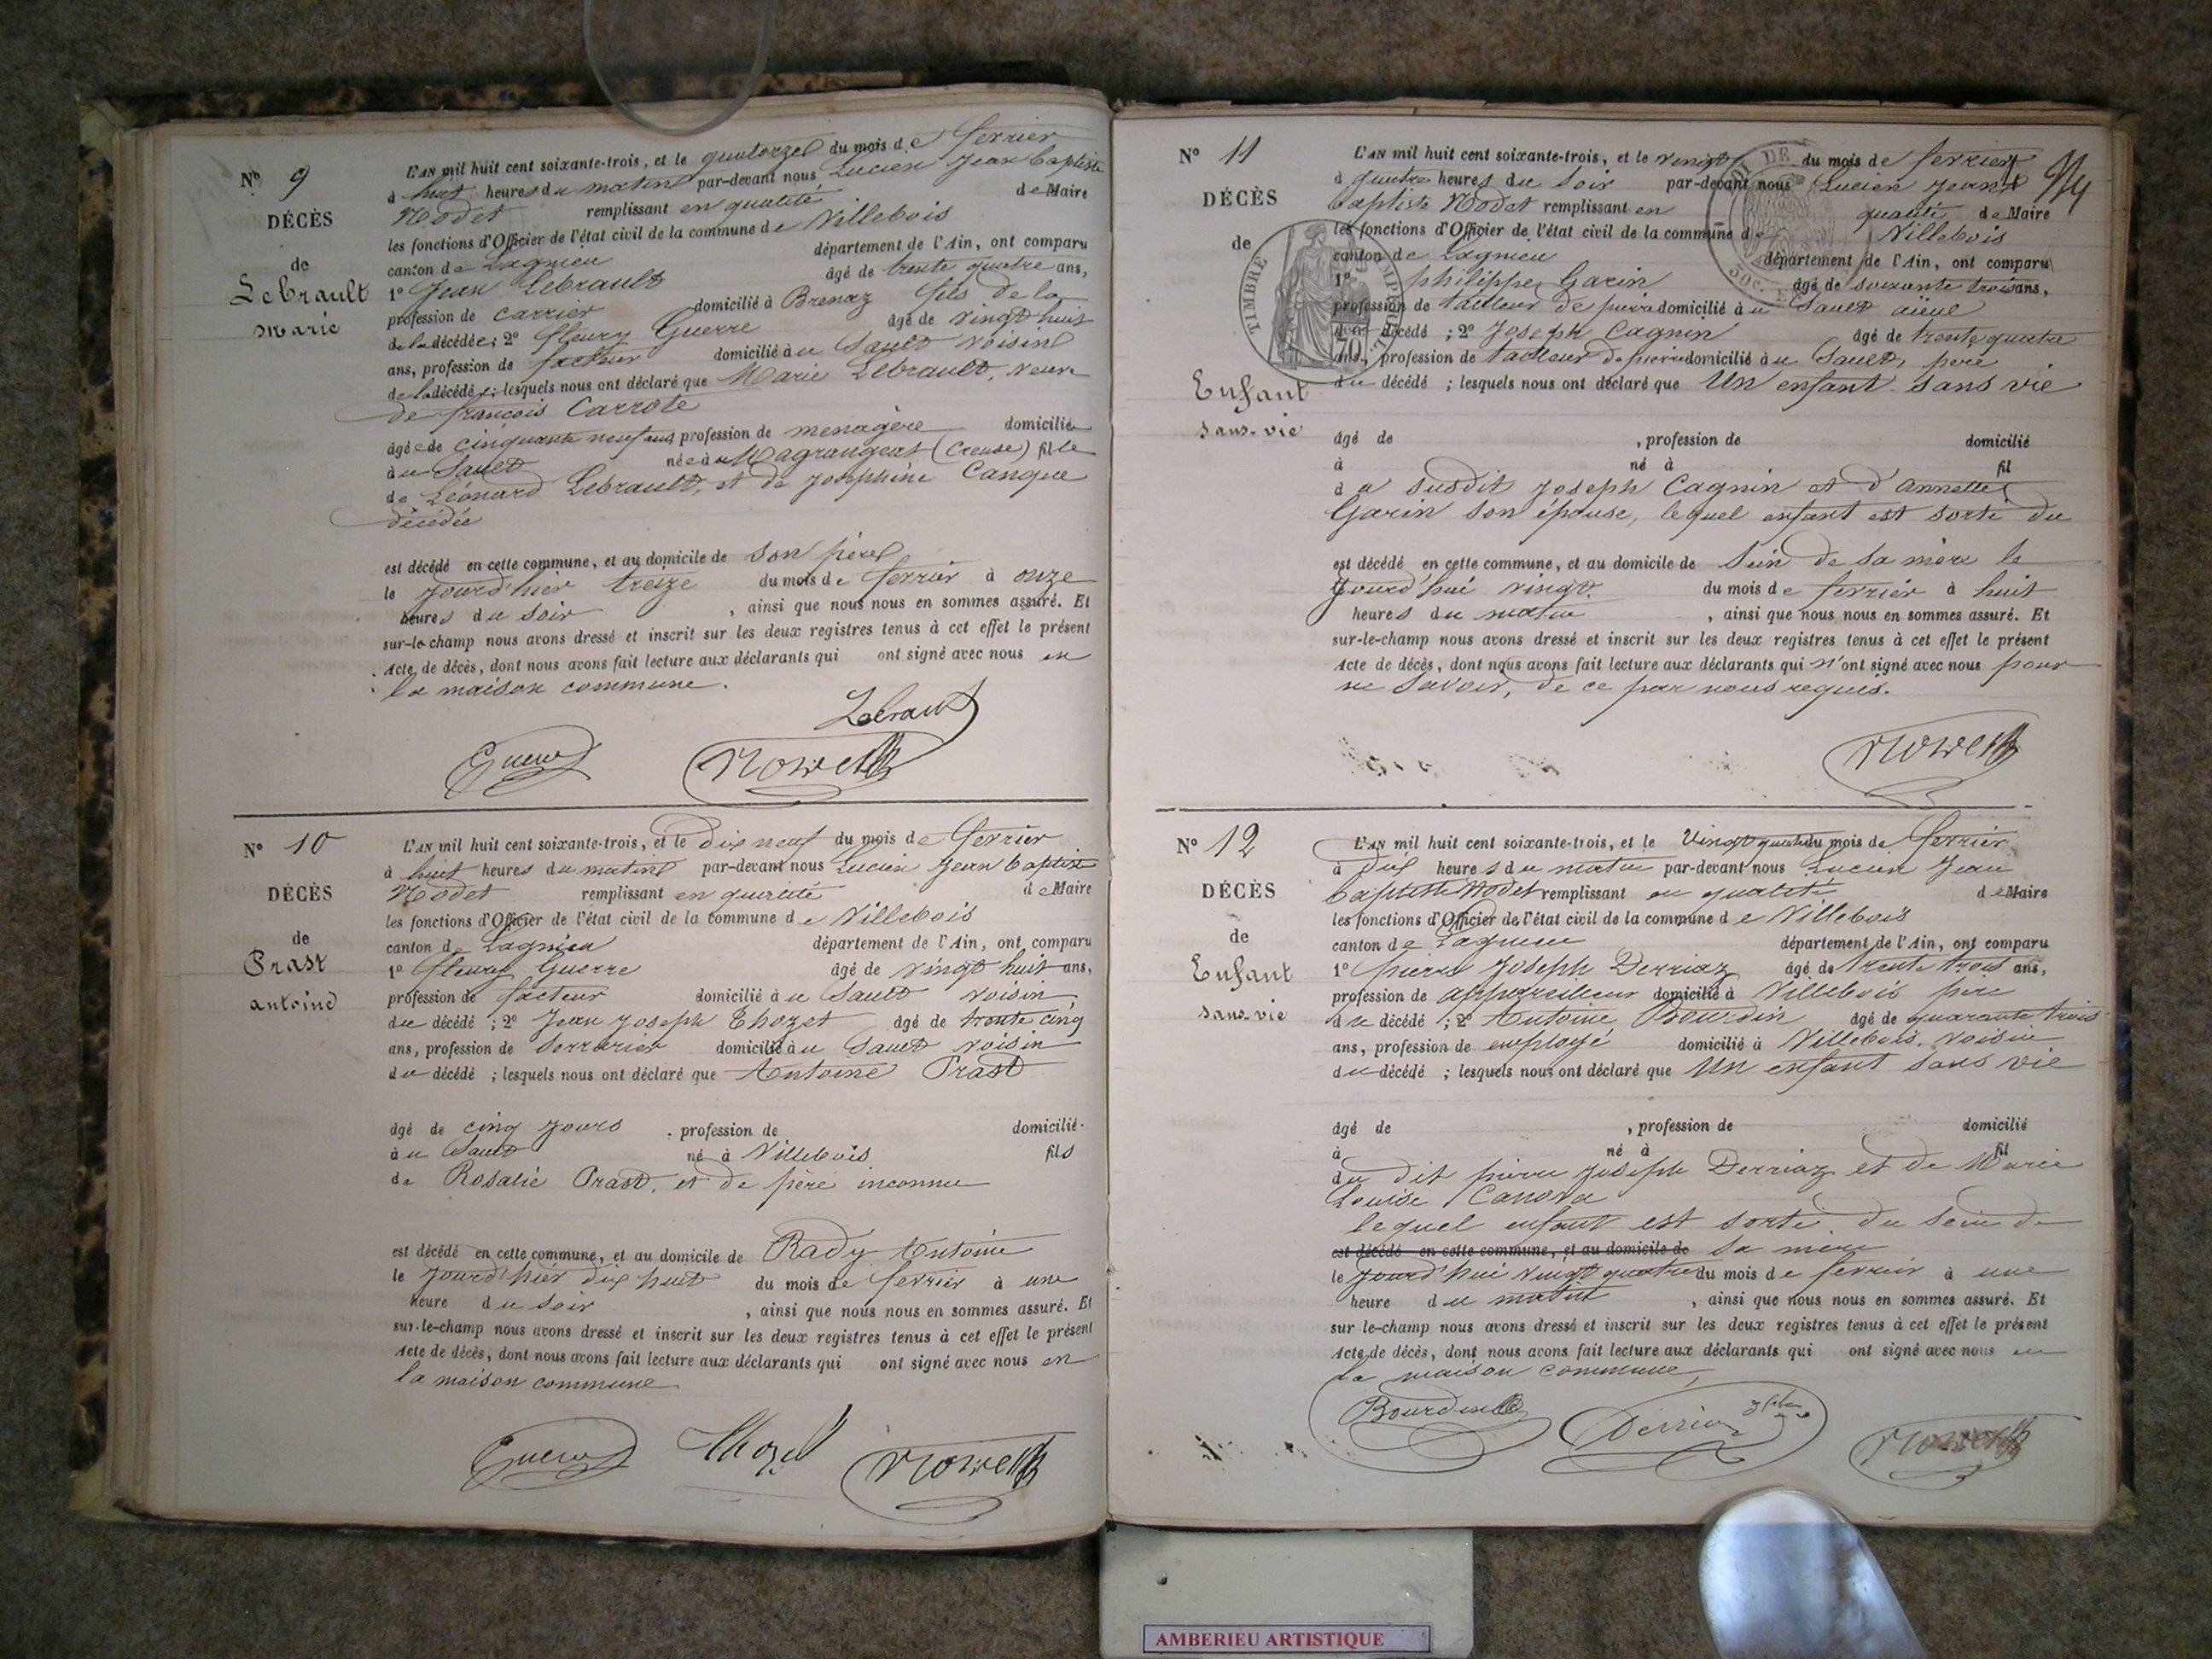 N° 9
DÉCÈS
de
Lebrault
Marie
L'AN mil huit cent soixante-trois, et le quatorze du mois de fevrier
à huit heures du matin par-devant nous Lucien Jean baptiste
Nodet remplissant en qualité de Maire
les fonctions d'Officier de l'état civil de la commune de Villebois
canton de Lagnieu département de l'Ain, ont comparu
1° Jean Lebrault âgé de trente quatre ans,
profession de carrier domicilié à Brenaz fils de la
de la décédée; 2° fleury Guerre âgé de vingt huit
ans, profession de facteur domicilié au Sault voisin
de la décédée; lesquels nous ont déclaré que Marie Lebrault, veuve
de françois Carrote
âgée de cinquante neuf ans profession de menagère domiciliée
au Sault née à Magrangeas (Creuse) fille
de Léonard Lebrault, et de Josephine Canque
décédée
est décédé en cette commune, et au domicile de son père
le jourd'hier treize du mois de fevrier à onze
heures du soir , ainsi que nous nous en sommes assuré. Et
sur-le-champ nous avons dressé et inscrit sur les deux registres tenus à cet effet le présent
Acte de décès, dont nous avons fait lecture aux déclarants qui ont signé avec nous en
la maison commune.
Lebrault
Guerre
N° 10
DÉCÈS
de
Prast
antoine
L'AN mil huit cent soixante-trois, et le dix neuf du mois de fevrier
à huit heures du matin par-devant nous Lucien Jean baptiste
Nodet remplissant en qualité de Maire
les fonctions d'Officier de l'état civil de la commune de Villebois
canton de Lagnieu département de l'Ain, ont comparu
1° fleury Guerre âgé de vingt huit ans,
profession de facteur domicilié au Sault voisin
du décédé ; 2° Jean Joseph Thozet âgé de trente cinq
ans, profession de serrurier domicilié au Sault voisin
du décédé ; lesquels nous ont déclaré que Antoine Prast
âgé de cinq jours , profession de domicilié
au Sault né à Villebois fils
de Rosalie Prast, et de père inconnu
est décédé en cette commune, et au domicile de Rady Antoine
le jourd'hier dix huit du mois de fevrier à une
heure du soir , ainsi que nous nous en sommes assuré. Et
sur-le-champ nous avons dressé et inscrit sur les deux registres tenus à cet effet le présent
Acte de décès, dont nous avons fait lecture aux déclarants qui ont signé avec nous en
la maison commune
Guerre Thozet
N° 11
DÉCÈS
de
Enfant
sans-vie
TIMBRE IMPERIAL
L'AN mil huit cent soixante-trois, et le vingt du mois de fevrier
à quatre heures du soir par-devant nous Lucien Jean
baptiste Nodet remplissant en qualité de Maire
les fonctions d'Officier de l'état civil de la commune de Villebois
canton de Lagnieu département de l'Ain, ont comparu
1° philippe Garin âgé de soixante trois ans,
profession de tailleur de pierre domicilié au Sault aïeul
du décédé ; 2° Joseph Cagnin âgé de trente quatre
ans, profession de tailleur de pierre domicilié au Sault, père
du décédé ; lesquels nous ont déclaré que Un enfant sans vie
âgé de , profession de domicilié
à né à fil
du susdit Joseph Cagnin et d'annette
Garin son épouse, lequel enfant est sorti du
est décédé en cette commune, et au domicile de sein de sa mère le
jourd'hui vingt du mois de fevrier à huit
heures du matin , ainsi que nous nous en sommes assuré. Et
sur-le-champ nous avons dressé et inscrit sur les deux registres tenus à cet effet le présent
Acte de décès, dont nous avons fait lecture aux déclarants qui n'ont signé avec nous pour
ne savoir, de ce par nous requis.
N° 12
DÉCÈS
de
Enfant
sans-vie
L'AN mil huit cent soixante-trois, et le Vingt quatre du mois de fevrier
à dix heures du matin par-devant nous Lucien Jean
baptiste Nodet remplissant en qualité de Maire
les fonctions d'Officier de l'état civil de la commune de Villebois
canton de Lagnieu département de l'Ain, ont comparu
1° pierre Joseph Derriaz âgé de trente trois ans,
profession de appareilleur domicilié à Villebois père
du décédé ; 2° Antoine Bourdin âgé de quarante trois
ans, profession de employé domicilié à Villebois, voisin
du décédé ; lesquels nous ont déclaré que Un enfant sans vie
âgé de , profession de domicilié
à né à fil
du dit pierre Joseph Derriaz et de Marie
Louise Canova
lequel enfant est sorti du sein de
est décédé en cette commune, et au domicile de sa mère
le jourd'hui vingt quatre du mois de fevrier à une
heure du matin , ainsi que nous nous en sommes assuré. Et
sur le-champ nous avons dressé et inscrit sur les deux registres tenus à cet effet le présent
Acte de décès, dont nous avons fait lecture aux déclarants qui ont signé avec nous en
la maison commune,
Bourdin Derriaz
AMBERIEU ARTISTIQUE